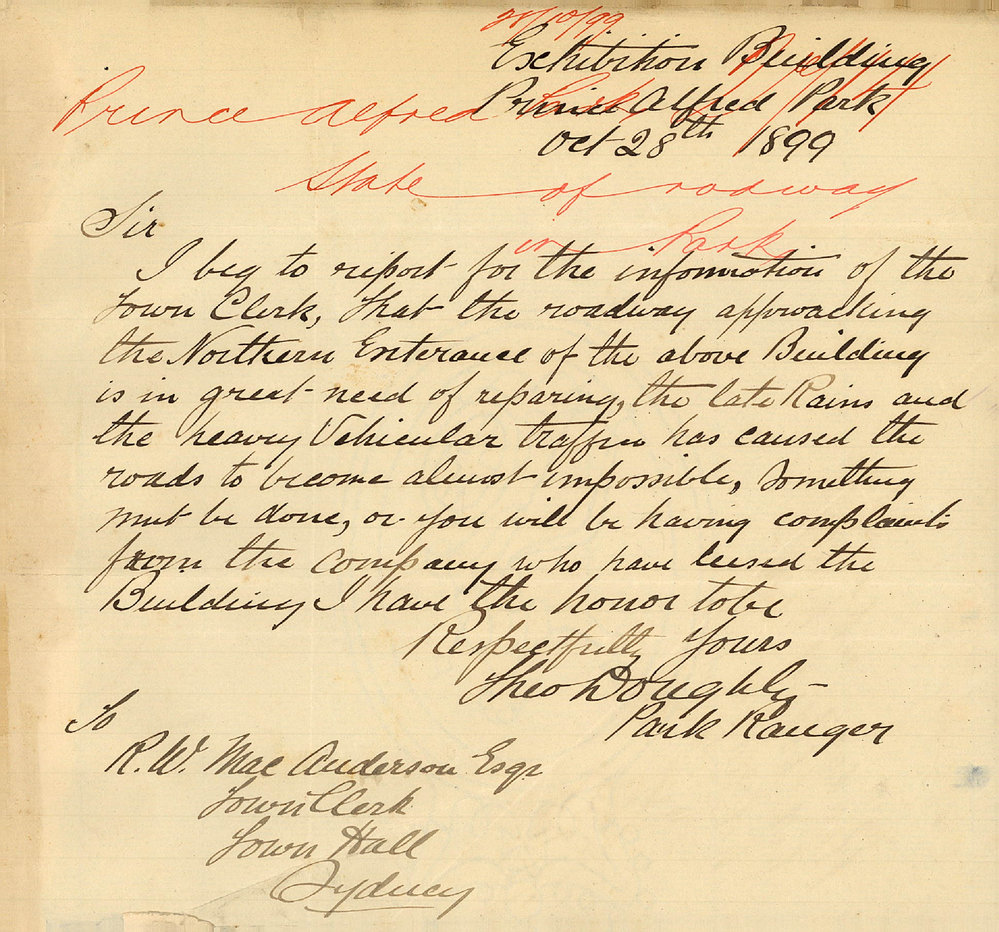 28/10/99
Exhibition Building
Prince Alfred Park
Prince Alfred Park
Oct 28th 1899
State of roadway
in Park
Sir
I beg to report for the information of the
Town Clerk, that the roadway approaching
the Northern Enterance of the above Building
is in great need of reparing, the late Rains and
the heavy Vehicular traffic has caused the
roads to become almost impossible, Something
must be done, or you will be having complaints
from the Company who have leased the
Building I have the honor to be
Respectfully Yours
Theo Doughty
Park Ranger
To
R. W. Mac Anderson Esqr
Town Clerk
Town Hall
Sydney